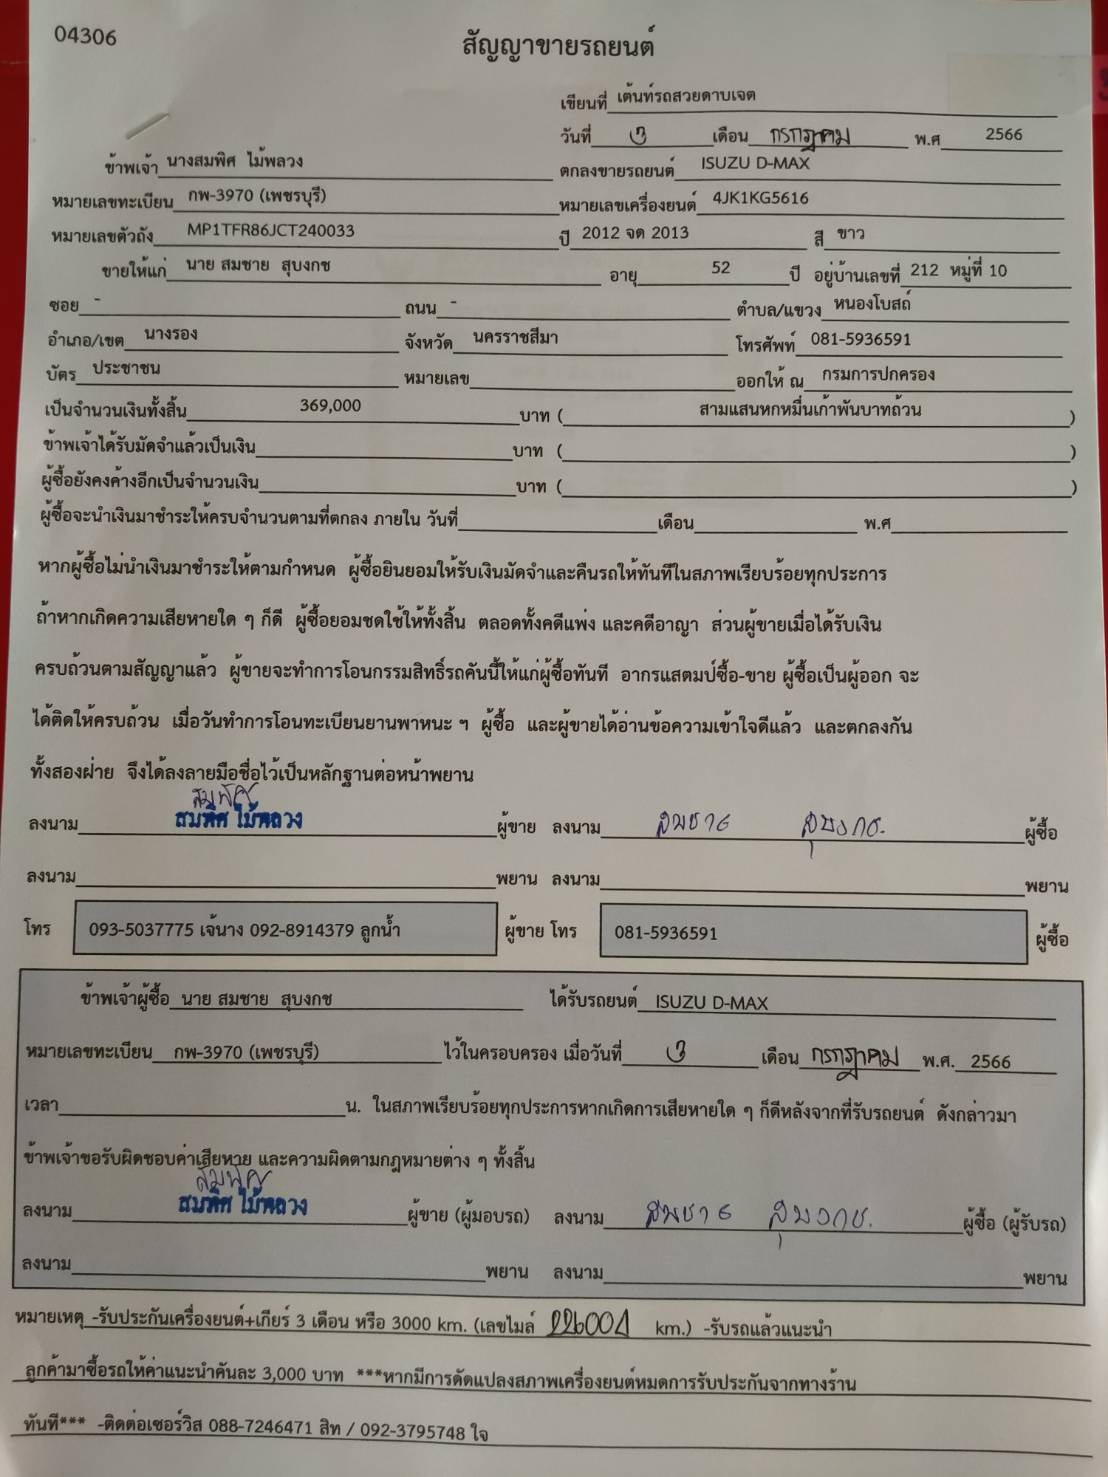 04306
สัญญาขายรถยนต์
เขียนที่ เต้นท์รถสวยดาบเจต
วันที่ ๓ เดือน กรกฎาคม พ.ศ 2566
ข้าพเจ้า นางสมพิศ ไม้พลวง ตกลงขายรถยนต์ ISUZU D-MAX
หมายเลขทะเบียน กพ-3970 (เพชรบุรี) หมายเลขเครื่องยนต์ 4JK1KG5616
หมายเลขตัวถัง MP1TFR86JCT240033 ปี 2012 จด 2013 สี ขาว
ขายให้แก่ นาย สมชาย สุบงกช อายุ 52 ปี อยู่บ้านเลขที่ 212 หมู่ที่ 10
ซอย - ถนน - ตำบล/แขวง หนองโบสถ์
อำเภอ/เขต นางรอง จังหวัด นครราชสีมา โทรศัพท์ 081-5936591
บัตร ประชาชน หมายเลข ออกให้ ณ กรมการปกครอง
เป็นจำนวนเงินทั้งสิ้น 369,000 บาท ( สามแสนหกหมื่นเก้าพันบาทถ้วน )
ข้าพเจ้าได้รับมัดจำแล้วเป็นเงิน บาท ( )
ผู้ซื้อยังคงค้างอีกเป็นจำนวนเงิน บาท ( )
ผู้ซื้อจะนำเงินมาชำระให้ครบจำนวนตามที่ตกลง ภายใน วันที่ เดือน พ.ศ
หากผู้ซื้อไม่นำเงินมาชำระให้ตามกำหนด ผู้ซื้อยินยอมให้รับเงินมัดจำและคืนรถให้ทันทีในสภาพเรียบร้อยทุกประการ
ถ้าหากเกิดความเสียหายใด ๆ ก็ดี ผู้ซื้อยอมชดใช้ให้ทั้งสิ้น ตลอดทั้งคดีแพ่ง และคดีอาญา ส่วนผู้ขายเมื่อได้รับเงิน
ครบถ้วนตามสัญญาแล้ว ผู้ขายจะทำการโอนกรรมสิทธิ์รถคันนี้ให้แก่ผู้ซื้อทันที อากรแสตมป์ซื้อ-ขาย ผู้ซื้อเป็นผู้ออก จะ
ได้ติดให้ครบถ้วน เมื่อวันทำการโอนทะเบียนยานพาหนะ ฯ ผู้ซื้อ และผู้ขายได้อ่านข้อความเข้าใจดีแล้ว และตกลงกัน
ทั้งสองฝ่าย จึงได้ลงลายมือชื่อไว้เป็นหลักฐานต่อหน้าพยาน
สมพิศ
ลงนาม สมพิศ ไม้พลวง ผู้ขาย ลงนาม สมชาย สุบงกช. ผู้ซื้อ
ลงนาม พยาน ลงนาม พยาน
โทร 093-5037775 เจ้นาง 092-8914379 ลูกน้ำ ผู้ขาย โทร 081-5936591 ผู้ซื้อ
ข้าพเจ้าผู้ซื้อ นาย สมชาย สุบงกช ได้รับรถยนต์ ISUZU D-MAX
หมายเลขทะเบียน กพ-3970 (เพชรบุรี) ไว้ในครอบครอง เมื่อวันที่ ๓ เดือน กรกฎาคม พ.ศ. 2566
เวลา น. ในสภาพเรียบร้อยทุกประการหากเกิดการเสียหายใด ๆ ก็ดีหลังจากที่รับรถยนต์ ดังกล่าวมา
ข้าพเจ้าขอรับผิดชอบค่าเสียหาย และความผิดตามกฎหมายต่าง ๆ ทั้งสิ้น
สมพิศ
ลงนาม สมพิศ ไม้พลวง ผู้ขาย (ผู้มอบรถ) ลงนาม สมชาย สุบงกช. ผู้ซื้อ (ผู้รับรถ)
ลงนาม พยาน ลงนาม พยาน
หมายเหตุ -รับประกันเครื่องยนต์+เกียร์ 3 เดือน หรือ 3000 km. (เลขไมล์ 226001 km.) -รับรถแล้วแนะนำ
ลูกค้ามาซื้อรถให้ค่าแนะนำคันละ 3,000 บาท ***หากมีการดัดแปลงสภาพเครื่องยนต์หมดการรับประกันจากทางร้าน
ทันที*** -ติดต่อเซอร์วิส 088-7246471 สิท / 092-3795748 ใจ